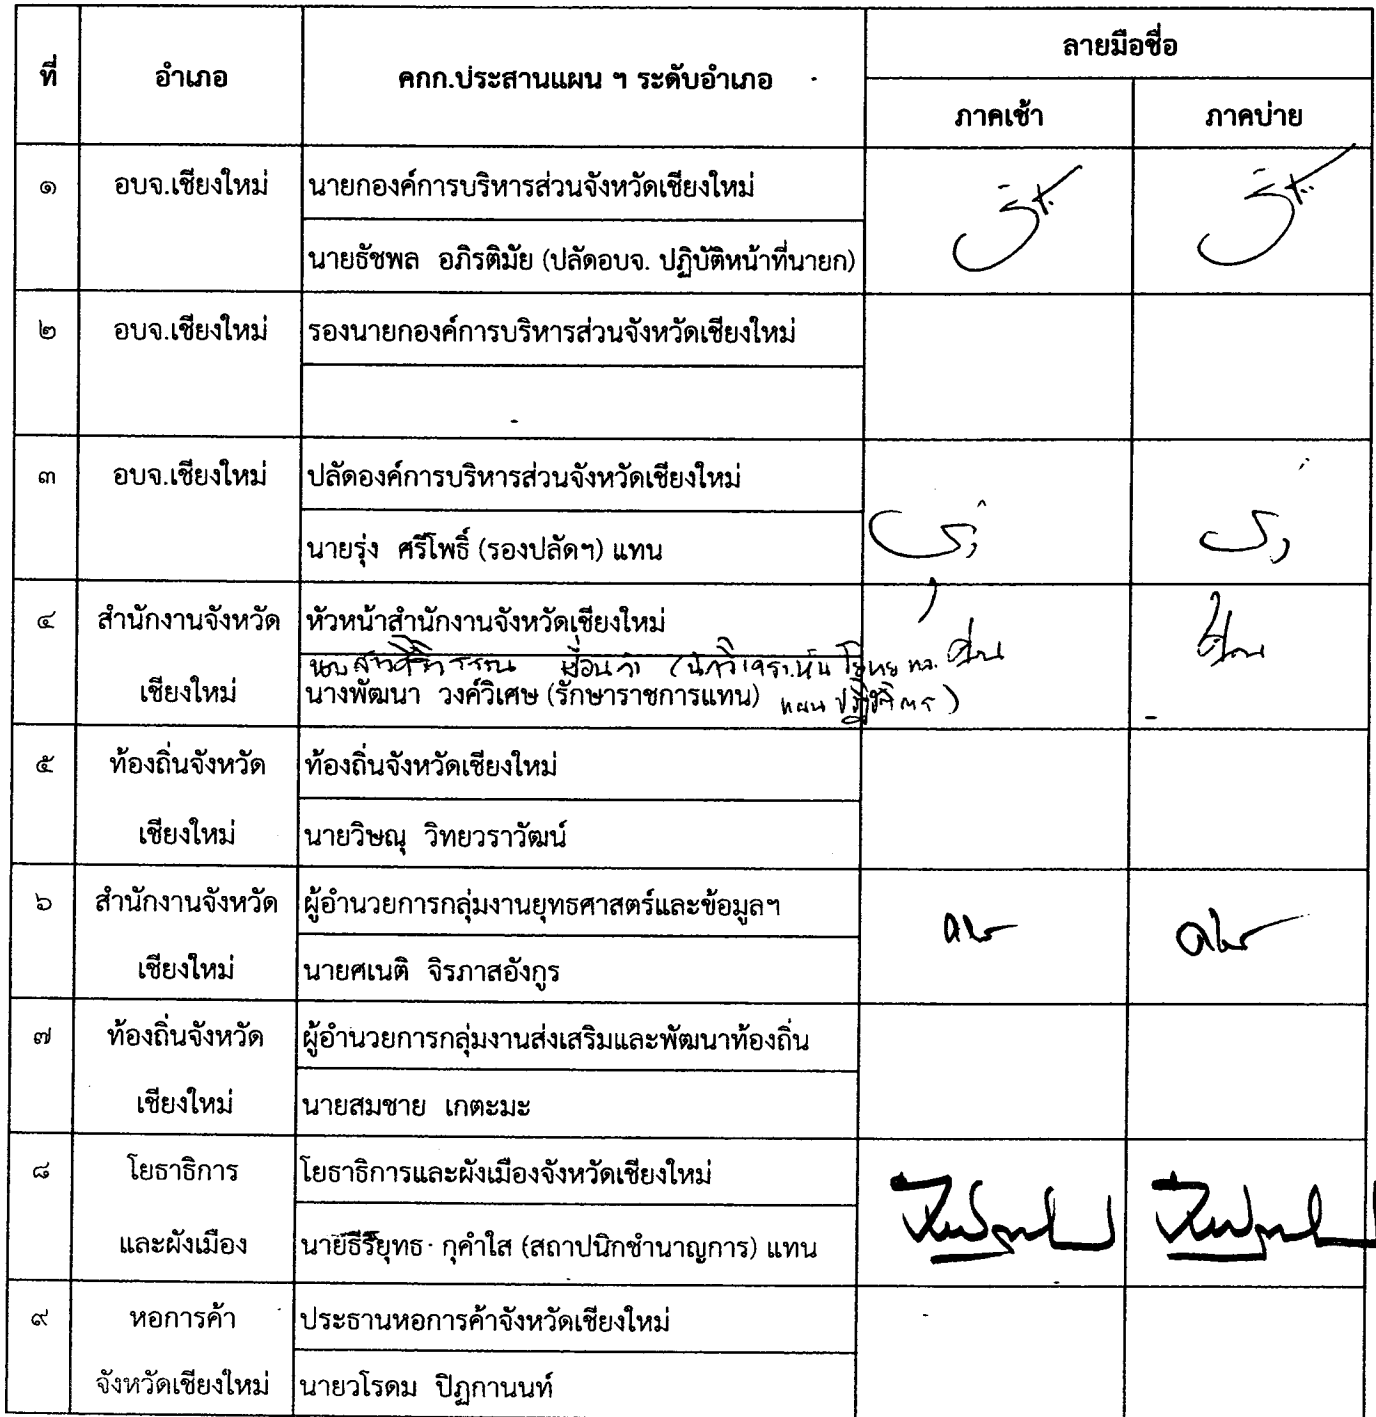 ที่ อำเภอ คกก.ประสานแผน ฯ ระดับอำเภอ ลายมือชื่อ
ภาคเช้า ภาคบ่าย
๑ อบจ.เชียงใหม่ นายกองค์การบริหารส่วนจังหวัดเชียงใหม่
นายธัชพล อภิรติมัย (ปลัดอบจ. ปฏิบัติหน้าที่นายก)
๒ อบจ.เชียงใหม่ รองนายกองค์การบริหารส่วนจังหวัดเชียงใหม่
๓ อบจ.เชียงใหม่ ปลัดองค์การบริหารส่วนจังหวัดเชียงใหม่
นายรุ่ง ศรีโพธิ์ (รองปลัดฯ) แทน
๔ สำนักงานจังหวัด หัวหน้าสำนักงานจังหวัดเชียงใหม่
เชียงใหม่ นางพัฒนา วงค์วิเศษ (รักษาราชการแทน)
๕ ท้องถิ่นจังหวัด ท้องถิ่นจังหวัดเชียงใหม่
เชียงใหม่ นายวิษณุ วิทยวราวัฒน์
๖ สำนักงานจังหวัด ผู้อำนวยการกลุ่มงานยุทธศาสตร์และข้อมูลฯ
เชียงใหม่ นายศเนติ จิรภาสอังกูร
๗ ท้องถิ่นจังหวัด ผู้อำนวยการกลุ่มงานส่งเสริมและพัฒนาท้องถิ่น
เชียงใหม่ นายสมชาย เกตะมะ
๘ โยธาธิการ โยธาธิการและผังเมืองจังหวัดเชียงใหม่
และผังเมือง นายธีรยุทธ กุคำใส (สถาปนิกชำนาญการ) แทน
๙ หอการค้า ประธานหอการค้าจังหวัดเชียงใหม่
จังหวัดเชียงใหม่ นายวโรดม ปิฏกานนท์